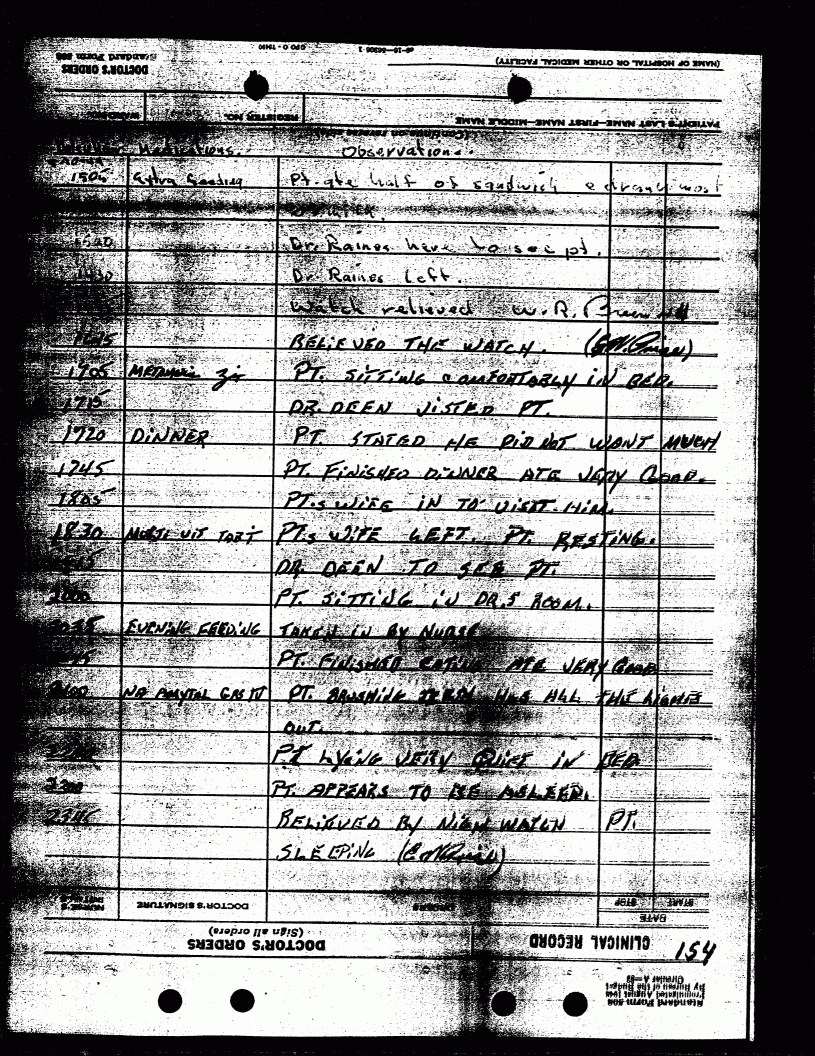 Standard Form 508
DOCTOR'S ORDERS
(NAME OF HOSPITAL OR OTHER MEDICAL FACILITY)
REGISTER NO.
PATIENT'S LAST NAME—FIRST NAME—MIDDLE NAME
Medications. Observation.
1505 Extra Feeding Pt. ate half of sandwich most
Dr. Raines here to see pt.
Dr. Raines Left.
Watch relieved W.R.
RELIEVED THE WATCH.
1705 PT. SITTING COMFORTABLY IN BED.
1715 DR. DEEN VISTED PT.
1720 DINNER PT. STATED HE DID NOT WANT MUCH
1745 PT. FINISHED DINNER ATE VERY GOOD.
1805 PT.S WIFE IN TO VISIT HIM.
1830 MULTI VIT TABT PT.S WIFE LEFT. PT. RESTING.
DR DEEN TO SEE PT.
2000 PT. SITTING IN DR.S ROOM.
EVENING FEEDING TAKEN IN BY NURSE
PT. FINISHED EATING ATE VERY GOOD
2100 NA AMYTAL PT. BRUSHING TEETH HAS ALL THE LIGHTS
OUT.
PT LYING VERY QUIET IN BED
2300 PT. APPEARS TO BE ASLEEP.
2345 RELIEVED BY WATCH PT.
SLEEPING
NURSE'S DOCTOR'S SIGNATURE ORDERS STOP START
DATE
DOCTOR'S ORDERS
(Sign all orders)
CLINICAL RECORD
154
Standard Form 508
Promulgated August
By Bureau of the Budget
Circular A—